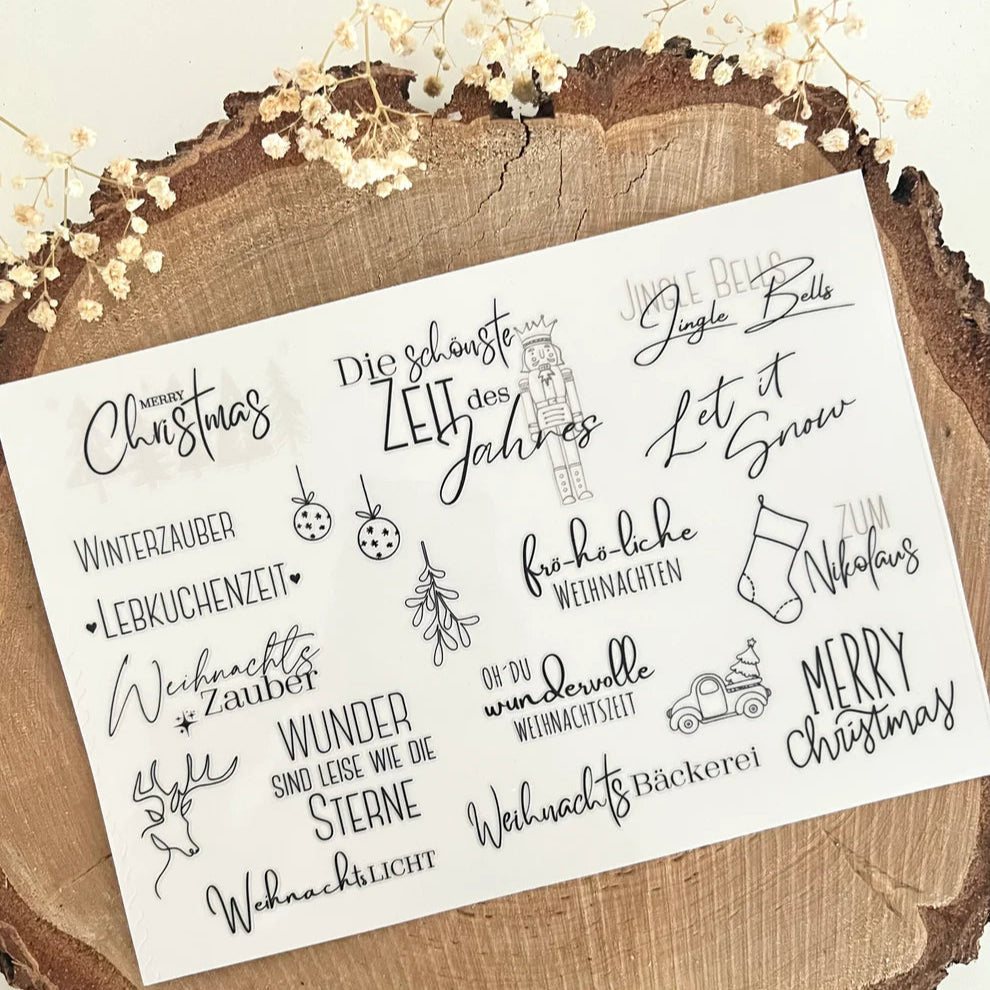 MERRY
Christmas
Die schönste
ZEIT des
Jahres
JINGLE BELLS
Jingle Bells
Let it
Snow
WINTERZAUBER
LEBKUCHENZEIT
Weihnachts
Zauber
frö-hö-liche
WEIHNACHTEN
ZUM
Nikolaus
WUNDER
SIND LEISE WIE DIE
STERNE
OH DU
wundervolle
WEIHNACHTSZEIT
MERRY
christmas
WeihnachtsLICHT
WeihnachtsBäckerei